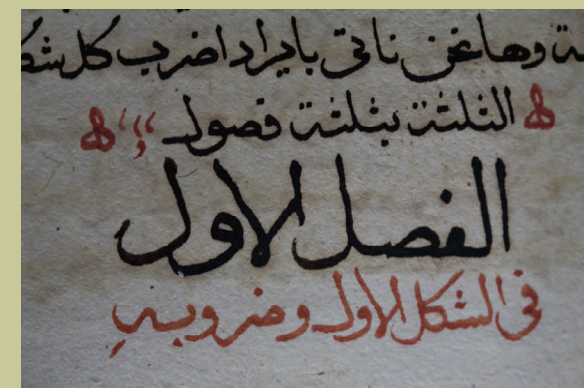 ـة وها نحن ناتى بايراد اضرب كل شكـ
الثلثة بثلثة فصول
الفصل الاول
فى الشكل الاول وضروبه